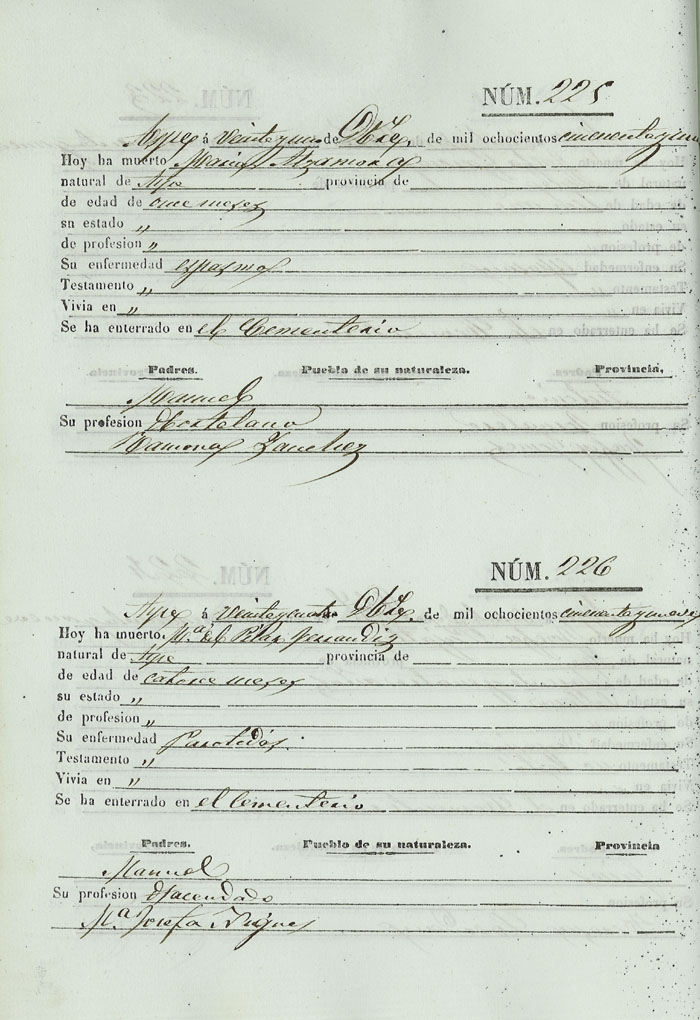 NÚM. 225
Aspe á veinte y uno de Dbre. de mil ochocientos cincuenta y nueve
Hoy ha muerto Maria Alzamora
natural de Aspe provincia de
de edad de once meses
su estado "
de profesion "
Su enfermedad espasmo
Testamento "
Vivia en "
Se ha enterrado en el Cementerio
Padres. Pueblo de su naturaleza. Provincia.
Manuel
Su profesion Hortelano
Ramona Sanchez
NÚM. 226
Aspe á veinte y cuatro Dbre. de mil ochocientos cincuenta y nueve
Hoy ha muerto Mª del Pilar
natural de Aspe provincia de
de edad de catorce meses
su estado "
de profesion "
Su enfermedad Parotidas.
Testamento "
Vivia en "
Se ha enterrado en el Cementerio
Padres. Pueblo de su naturaleza. Provincia
Manuel
Su profesion Hacendado
Mª Josefa